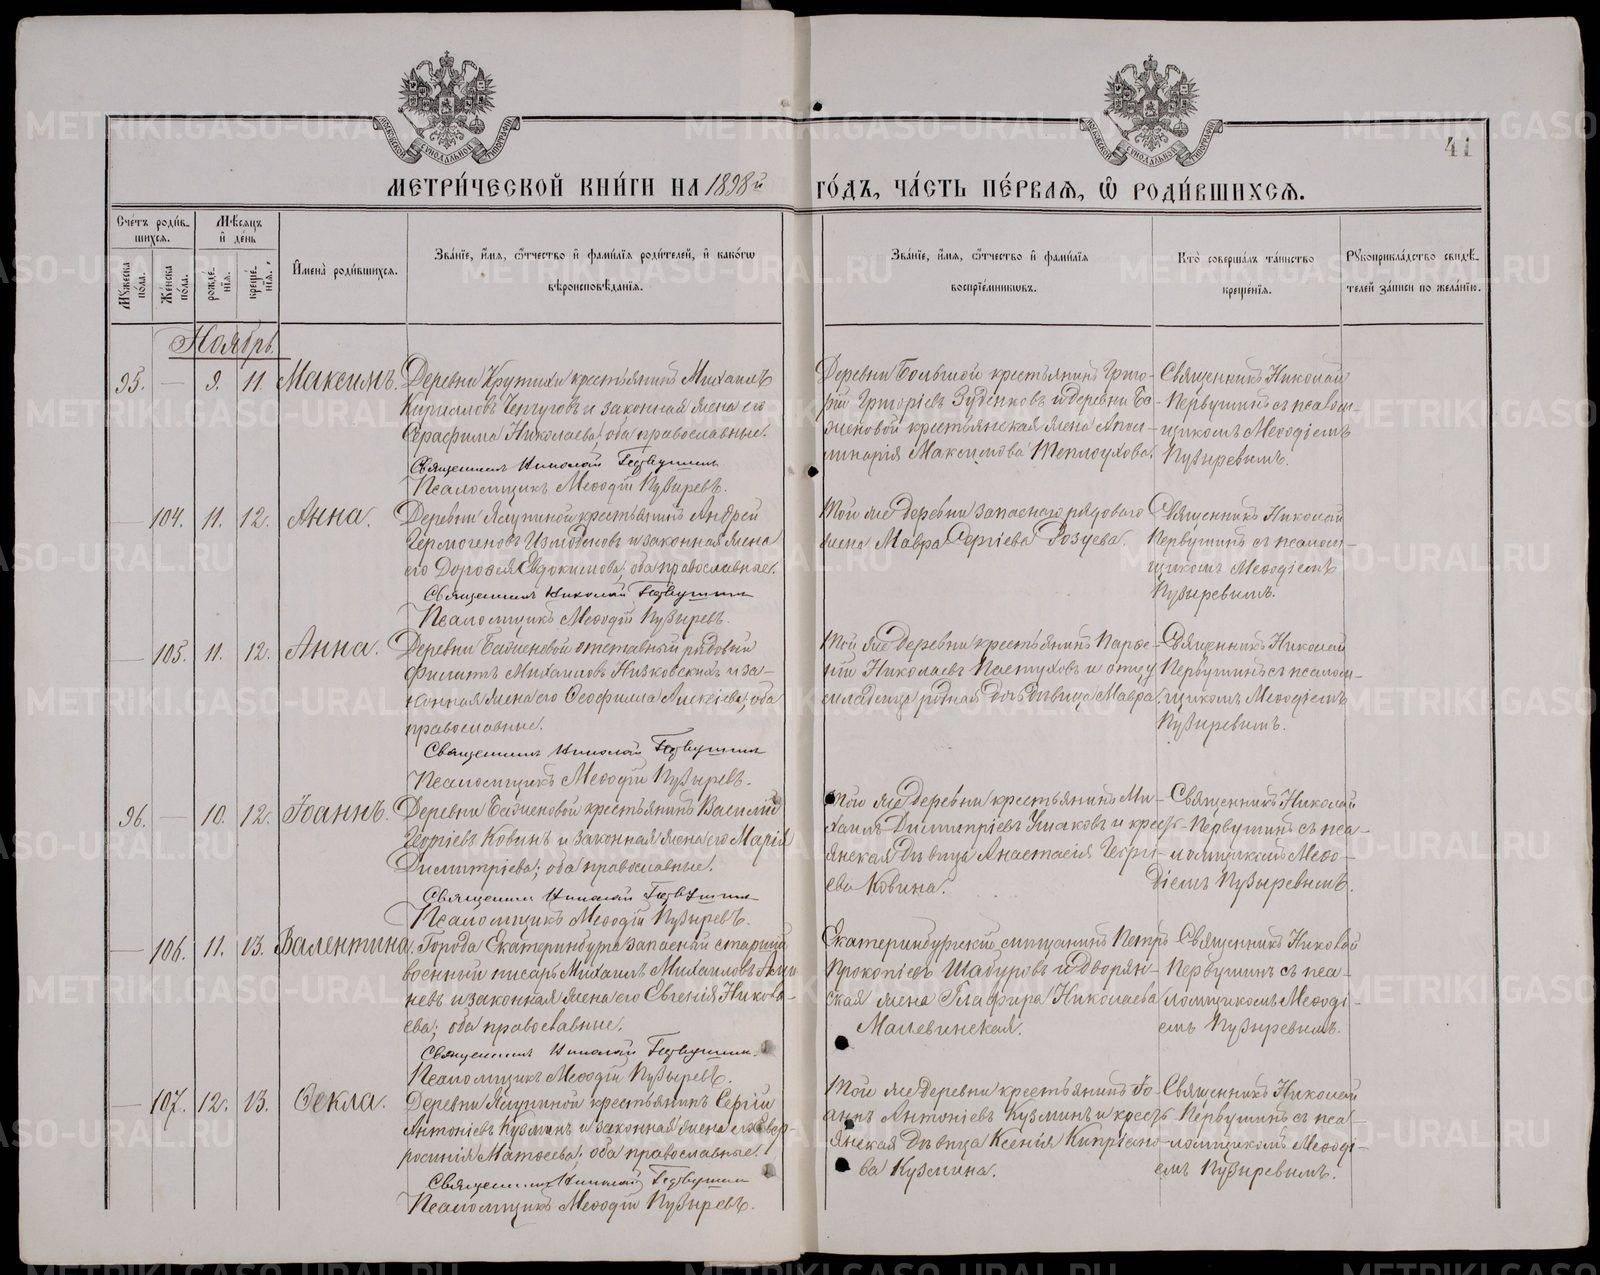 41
МЕТРИ́ЧЕСКОЙ КНИ́ГИ НА 1898й ГО́ДЪ, ЧА́СТЬ ПЕ́РВАЯ, Ѡ РОДИ́ВШИХСЯ.
Сче́тъ роди́вшихся.
Му́жеска по́ла.
Же́нска по́ла.
Мѣ́сяцъ и́ де́нь
рожде́нія.
креще́нія.
И́мена̀ роди́вшихся.
Зва́ніе, и́мя, ѻ́тчество и́ фами́лія роди́телей, и́ како́гѡ
вѣроисповѣ́данія.
Зва́ніе, и́мя, ѻ́тчество и́ фами́лія
воспріе́мниковъ.
Кто̀ соверша́лъ та́инство
креще́нія.
Рꙋкоприкла́дство свидѣ́-
телей за́писи по жела́нію.
Ноябрь.
95. — 9. 11. Максимъ.
Деревни Крутихи крестьянинъ Михаилъ
Кирилловъ Чепчуговъ и законная жена его
Серафима Николаева; оба православные.
Священникъ Николай Первушинъ
Псаломщикъ Меѳодій Пузыревъ.
Деревни Большой крестьянинъ Григо-
рій Григоріевъ Зуденковъ и деревни Ба-
женовой крестьянская жена Апол-
линарія Максимова Теплоухова.
Священникъ Николай
Первушинъ съ псалом-
щикомъ Меѳодіемъ
Пузыревымъ.
— 104. 11. 12. Анна.
Деревни Ялуниной крестьянинъ Андрей
Гермогеновъ Измоденовъ и законная жена
его Дороѳея Евдокимова; оба православные.
Священникъ Николай Первушинъ
Псаломщикъ Меѳодій Пузыревъ.
Той же деревни запаснаго рядоваго
жена Мавра Сергіева Розуева.
Священникъ Николай
Первушинъ съ псалом-
щикомъ Меѳодіемъ
Пузыревымъ.
— 105. 11. 12. Анна.
Деревни Баженовой отставный рядовый
Филиппъ Михаиловъ Низковскихъ и за-
конная жена его Ѳеофила Алексіева; оба
православные.
Священникъ Николай Первушинъ
Псаломщикъ Меѳодій Пузыревъ.
Той же деревни крестьянинъ Парѳе-
ній Николаевъ Пастуховъ и отцу
младенца родная дочь дѣвица Мавра.
Священникъ Николай
Первушинъ съ псалом-
щикомъ Меѳодіемъ
Пузыревымъ.
96. — 10. 12. Іоаннъ.
Деревни Баженовой крестьянинъ Василій
Георгіевъ Ковинъ и законная жена его Марія
Димитріева; оба православные.
Священникъ Николай Первушинъ
Псаломщикъ Меѳодій Пузыревъ.
Той же деревни крестьянинъ Ми-
хаилъ Димитріевъ Ушаковъ и кресть-
янская дѣвица Анастасія Георгі-
ева Ковина.
Священникъ Николай
Первушинъ съ пса-
ломщикомъ Меѳо-
діемъ Пузыревымъ.
— 106. 11. 13. Валентина.
Города Екатеринбурга запасный старшій
военный писарь Михаилъ Михаиловъ
и законная жена его Евгенія Никола-
ева; оба православные.
Священникъ Николай Первушинъ.
Псаломщикъ Меѳодій Пузыревъ.
Екатеринбургскій мѣщанинъ Петръ
Прокопіевъ Шабуровъ и дворян-
ская жена Глафира Николаева
Малевинская.
Священникъ Николай
Первушинъ съ пса-
ломщикомъ Меѳоді-
емъ Пузыревымъ.
— 107. 12. 13. Ѳекла.
Деревни Ялуниной крестьянинъ Сергій
Антоніевъ Кузминъ и законная жена его Евф-
росинія Матѳеева; оба православные.
Священникъ Николай Первушинъ
Псаломщикъ Меѳодій Пузыревъ.
Той же деревни крестьянинъ Іо-
аннъ Антоніевъ Кузминъ и кресть-
янская дѣвица Ксенія Кипріано-
ва Кузмина.
Священникъ Николай
Первушинъ съ пса-
ломщикомъ Меѳоді-
емъ Пузыревымъ.
METRIKI.GASO-URAL.RU